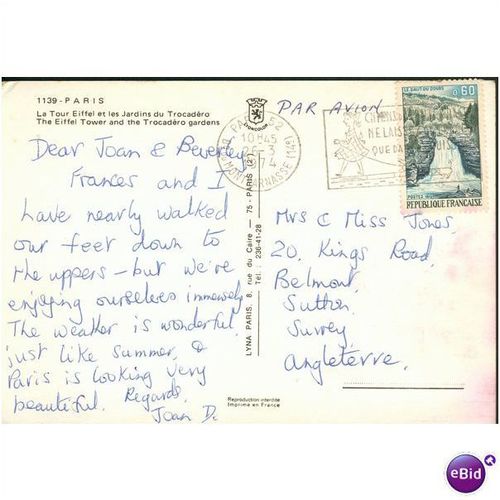 1139 - PARIS
La Tour Eiffel et les Jardins du Trocadéro
The Eiffel Tower and the Trocadéro gardens
PAR AVION
LE SAUT DU DOUBS
0,60
RÉPUBLIQUE FRANÇAISE
10 H45
25-3
1974
Dear Joan & Beverley,
Frances and I
have nearly walked
our feet down to
the uppers - but we're
enjoying ourselves immensely.
The weather is wonderful,
just like Summer, &
Paris is looking very
beautiful. Regards,
Joan D.
LYNA PARIS, 8, rue du Caire — 75 - PARIS (2)
Tél : 236-41-28
Mrs & Miss Jones,
20, Kings Road,
Belmont,
Sutton,
Surrey,
Angleterre.
Reproduction interdite
Imprimé en France
eBid